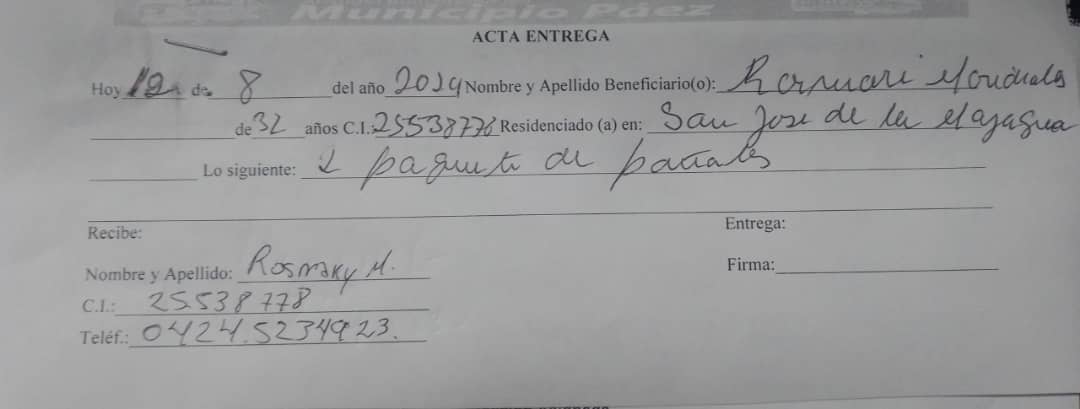 Municipio Páez
ACTA ENTREGA
Hoy 12 de 8 del año 2024 Nombre y Apellido Beneficiario(o):
de 32 años C.I.: 25538778 Residenciado (a) en: San Jose de la
Lo siguiente: 2 paquete de pañales
Recibe: Entrega:
Nombre y Apellido: Rosmary M. Firma:
C.I.: 25538778
Teléf.: 0424.5234923.